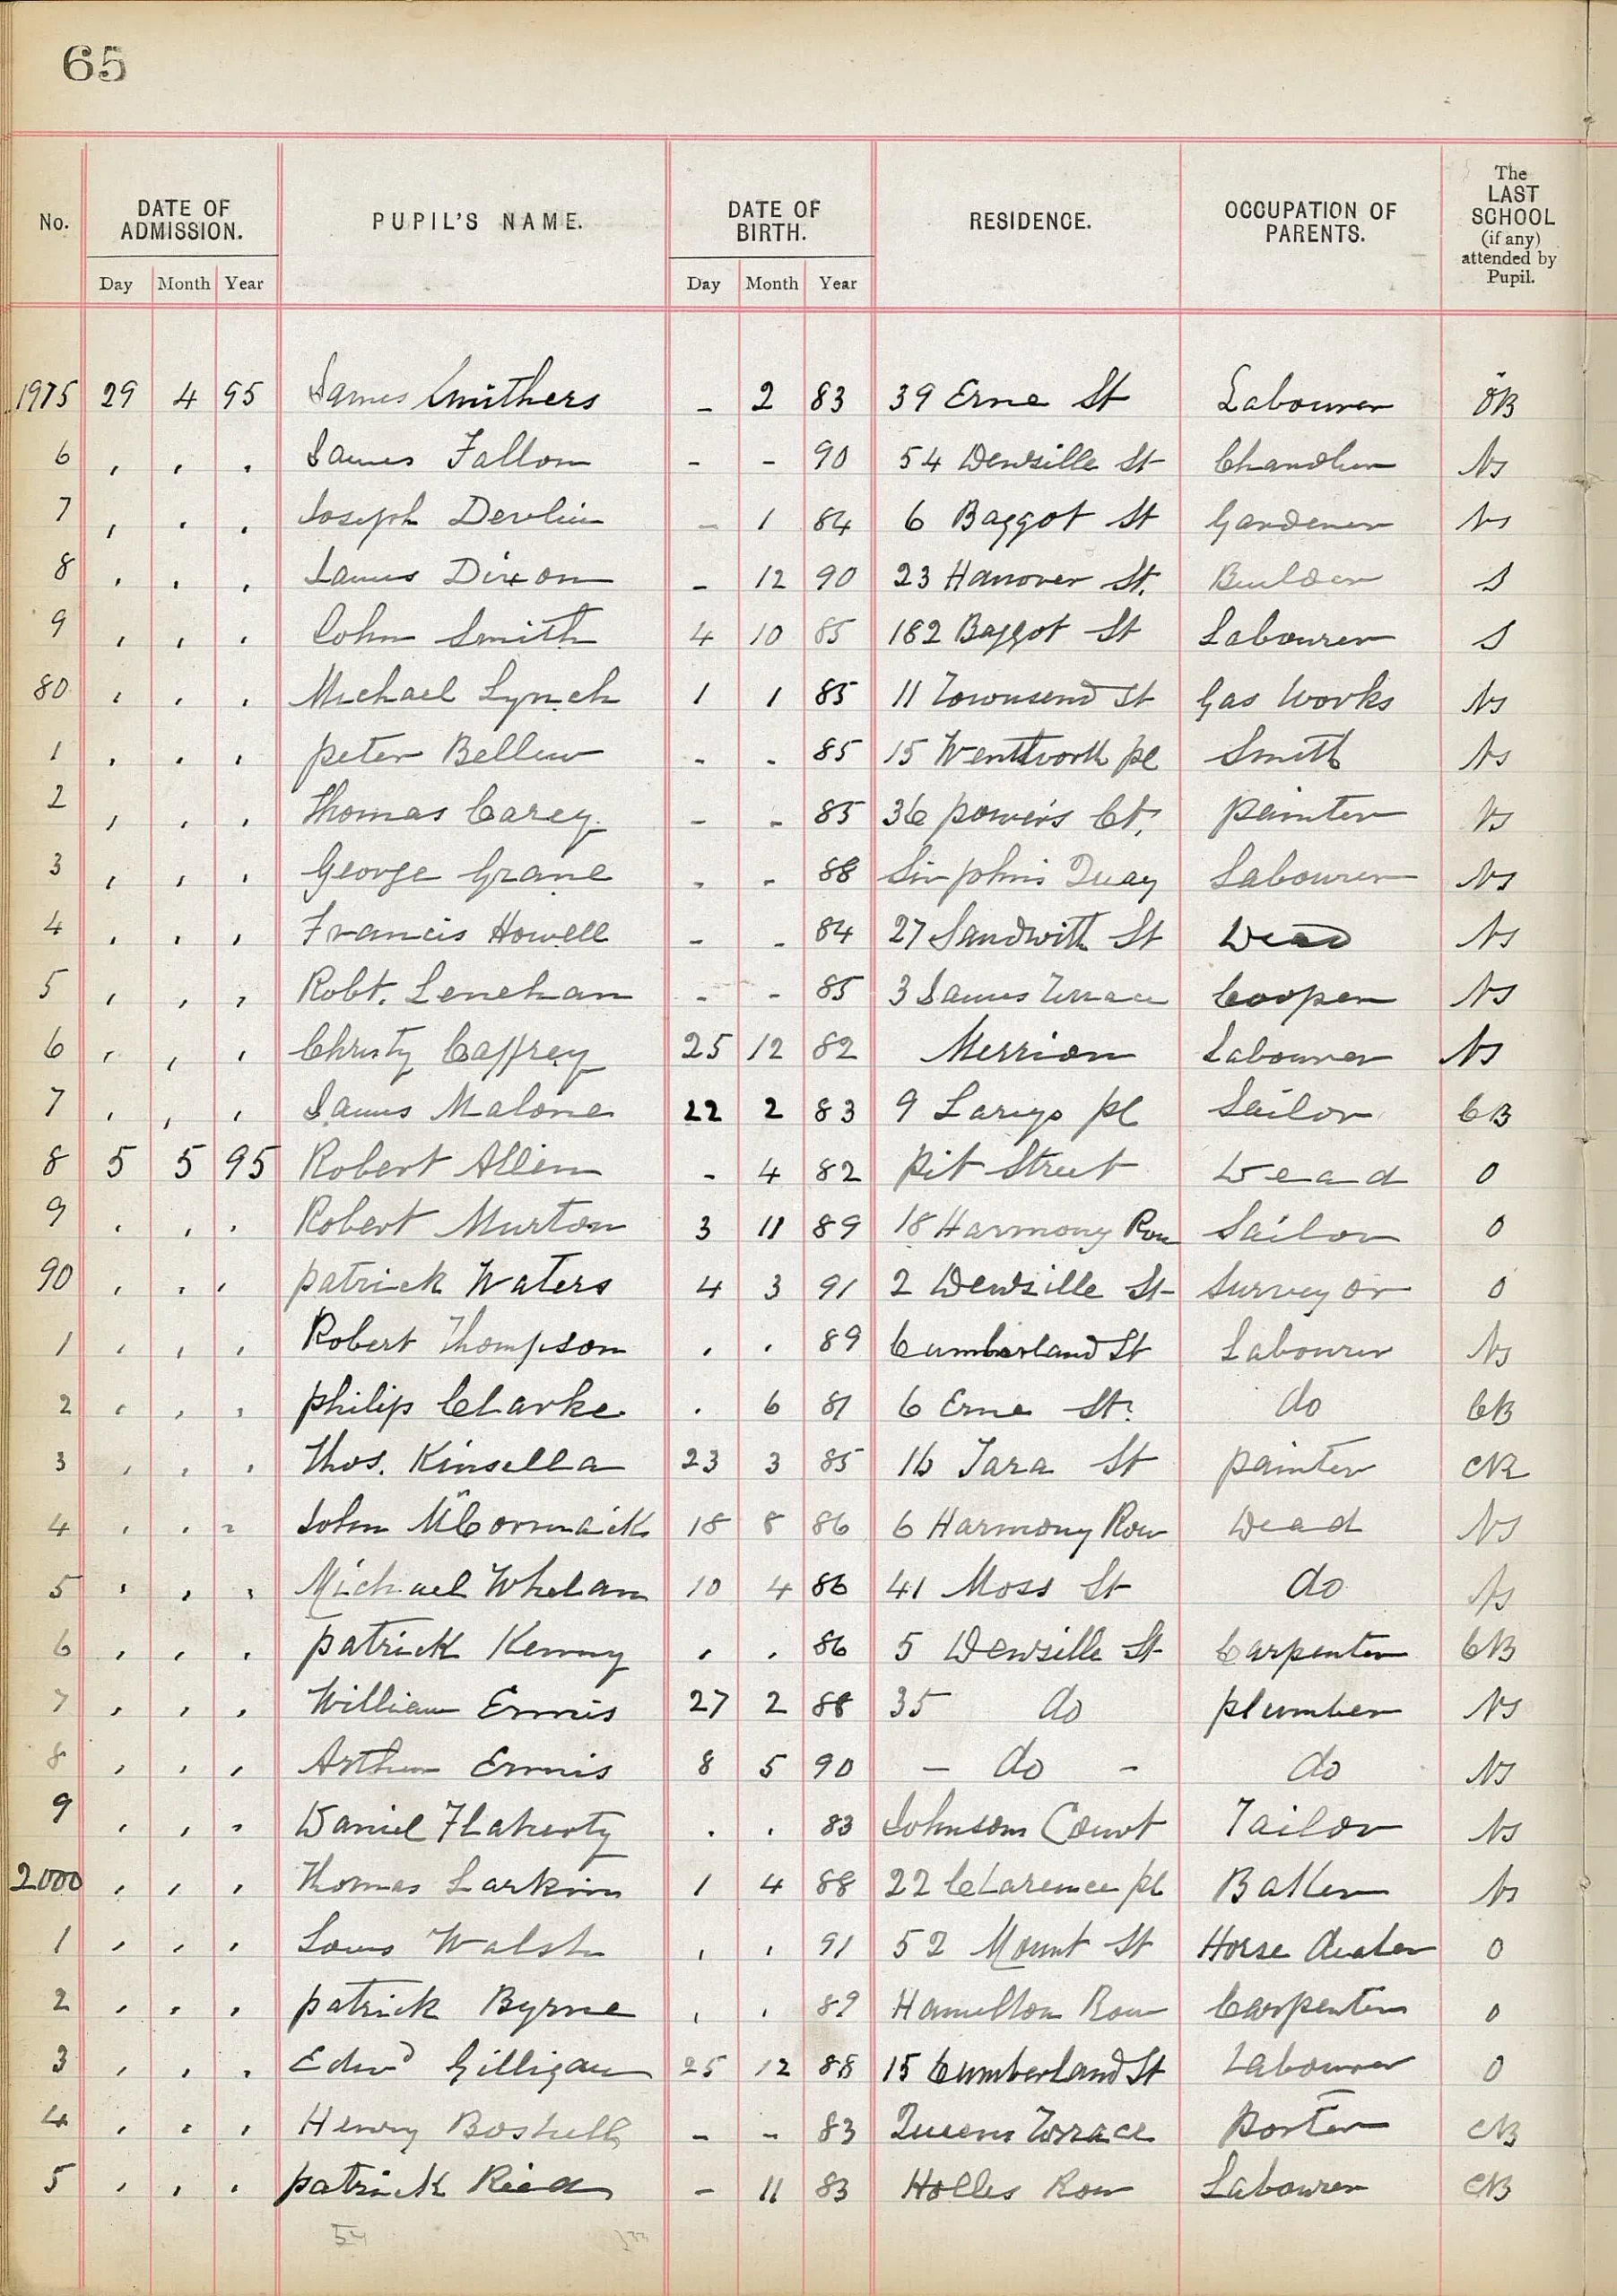 65
No. DATE OF ADMISSION. PUPIL'S NAME. DATE OF BIRTH. RESIDENCE. OCCUPATION OF PARENTS. The LAST SCHOOL (if any) attended by Pupil.
Day Month Year Day Month Year
1975 29 4 95 James Smithers - 2 83 39 Erne St Labourer
6 , , , James Fallon - - 90 54 Denzille St Chandler NS
7 , , , Joseph Devlin - 1 84 6 Baggot St Gardener NS
8 , , , James Dixon - 12 90 23 Hanover St. Builder S
9 , , , John Smith 4 10 85 182 Baggot St Labourer S
80 , , , Michael Lynch 1 1 85 11 Townsend St Gas Works NS
1 , , , Peter Bellew - - 85 15 Wentworth Pl Smith NS
2 , , , Thomas Carey - - 85 36 Power's Ct. Painter NS
3 , , , George Grane - - 88 Sir John's Quay Labourer NS
4 , , , Francis Howell - - 84 27 Sandwith St Dead NS
5 , , , Robt. Lenehan - - 85 3 James Terrace Cooper NS
6 , , , Christy Caffrey 25 12 82 Merrion Labourer NS
7 , , , James Malone 22 2 83 9 Pl Sailor CB
8 5 5 95 Robert Allen - 4 82 Pit Street Dead O
9 , , , Robert Murton 3 11 89 18 Harmony Row Sailor O
90 , , , Patrick Waters 4 3 91 2 Denzille St Surveyor O
1 , , , Robert Thompson , , 89 Cumberland St Labourer NS
2 , , , Philip Clarke . 6 81 6 Erne St. do CB
3 , , , Thos. Kinsella 23 3 85 16 Tara St Painter
4 , , , John McCormack 18 8 86 6 Harmony Row Dead NS
5 , , , Michael Whelan 10 4 86 41 Moss St do NS
6 , , , Patrick Kenny , , 86 5 Denzille St Carpenter CB
7 , , , William Ennis 27 2 88 35 do Plumber NS
8 , , , Arthur Ennis 8 5 90 - do - do NS
9 , , , Daniel Flaherty . . 83 Johnson Court Tailor NS
2000 , , , Thomas Larkin 1 4 88 22 Clarence Pl Baker NS
1 , , , Louis Walsh , , 91 52 Mount St Horse dealer O
2 , , , Patrick Byrne , , 89 Hamilton Row Carpenter O
3 , , , Edwd Gilligan 25 12 88 15 Cumberland St Labourer O
4 , , , Henry Boshell - - 83 Queens Terrace Porter CB
5 , , , Patrick Ried - 11 83 Holles Row Labourer CB